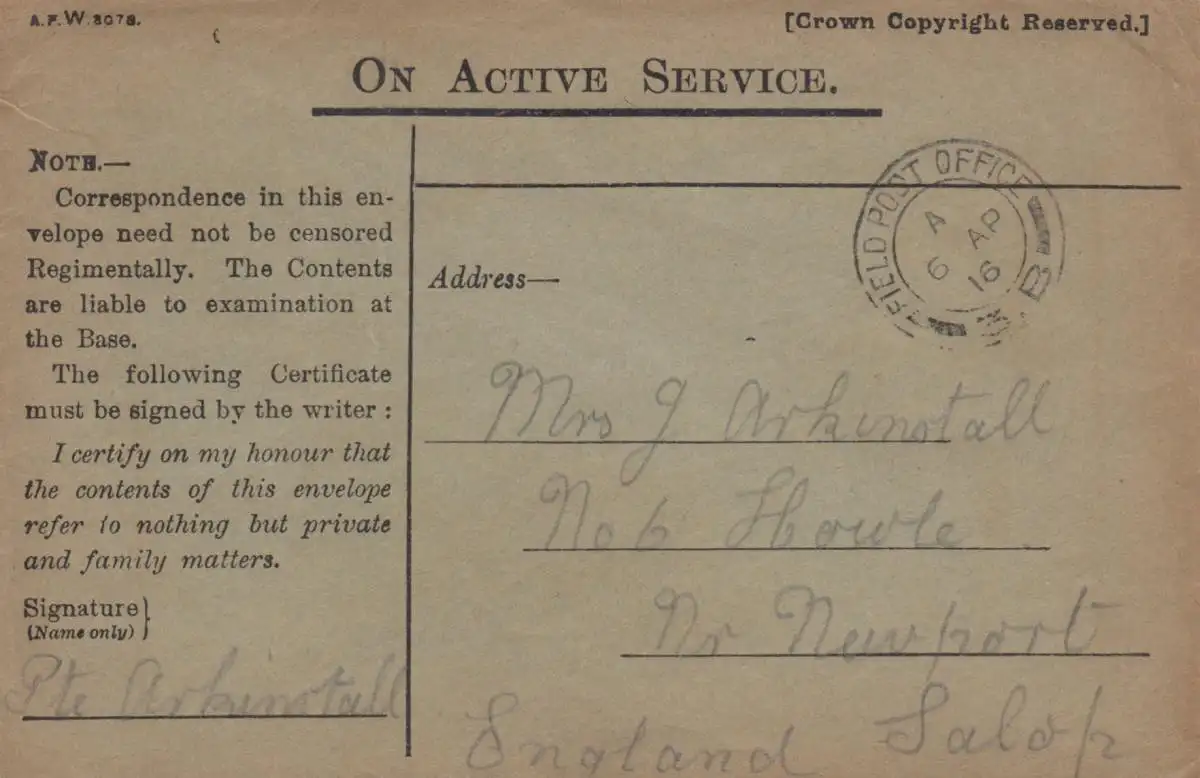 A.F.W.3078.
[Crown Copyright Reserved.]
ON ACTIVE SERVICE.
NOTE.—
Correspondence in this en-
velope need not be censored
Regimentally. The Contents
are liable to examination at
the Base.
The following Certificate
must be signed by the writer :
I certify on my honour that
the contents of this envelope
refer to nothing but private
and family matters.
Signature}
(Name only)
Pte Arkinstall
FIELD POST OFFICE
A AP
6 16
Address—
Mrs J Arkinstall
No 6 Howle
Nr Newport
England Salop